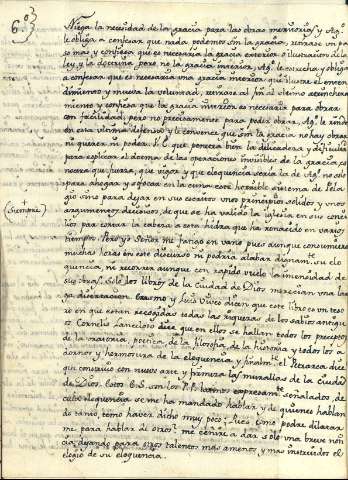 6.º
Niega la necesidad de la gracia para las obras meritorias y Ag.ⁿ
le obliga a confesar que nada podemos sin la gracia, retirase un pa
so mas, y confiesa que es necesaria la gracia exterior o ilustracion de la
ley, y la doctrina pero no la gracia interior, Ag.ⁿ le estrecha y obliga
a confesar que es necesaria una gracia interior que ilustre el enten
dimiento y mueva la voluntad, retirase al fin al ultimo atrinchera
miento y confiesa que la gracia interior es necesaria para obrar
con facilidad, pero no precisamente para poder obrar, Ag.ⁿ le rinde
en esta ultima defensa y le convence que sin la gracia no hay obrar
ni querer ni poder. S.S. que penetra bien la delicadeza y dificultad
para explicar el dogma de las operaciones invisibles de la gracia, co
nocera que fuerza, que vigor y que eloquencia seria la de Ag.ⁿ no solo
para ahogar y sofocar en la cuna este horrible sistema de Pela
gio sino para dejar en sus escritos unos principios solidos y unos
(siempre)
argumentos decisivos, de que se ha valido la iglesia en sus conci
lios para cortar la cabeza a esta hidra que ha renacido en varios
tiempos. Pero yo Señor me fatigo en vano pues aunque consumiera
muchas horas en este discurso ni podria alabar dignam.te su elo
quencia, ni recorrer aunque con rapido vuelo la inmensidad de
sus obras. Solo los libros de la Ciudad de Dios merecian una lar
ga disertacion. Erasmo y Luis Vives dicen que este libro es un teso
ro en que estan recogidas todas las riquezas de los sabios antiguos
Cornelio Lanceloto dice que en ellos se hallan todos los preceptos
de la oratoria, poetica, de la filosofia, de la historia y todos los a
dornos y hermosura de la eloquencia y finalm.te el Petrarca dice
que construio con nuevo arte y firmeza las murallas de la ciudad
de Dios. Estos S.S. son los P.P. latinos expresam.te señalados, de
cuya eloquencia se me ha mandado hablar y de quienes hablan
do tanto, temo haver dicho muy poco. Pues como podre dilatar
me para hablar de otros? me ceñire a dar solo una breve noti
cia dejando para otros talentos mas amenos y mas instruidos el
elogio de su eloquencia.